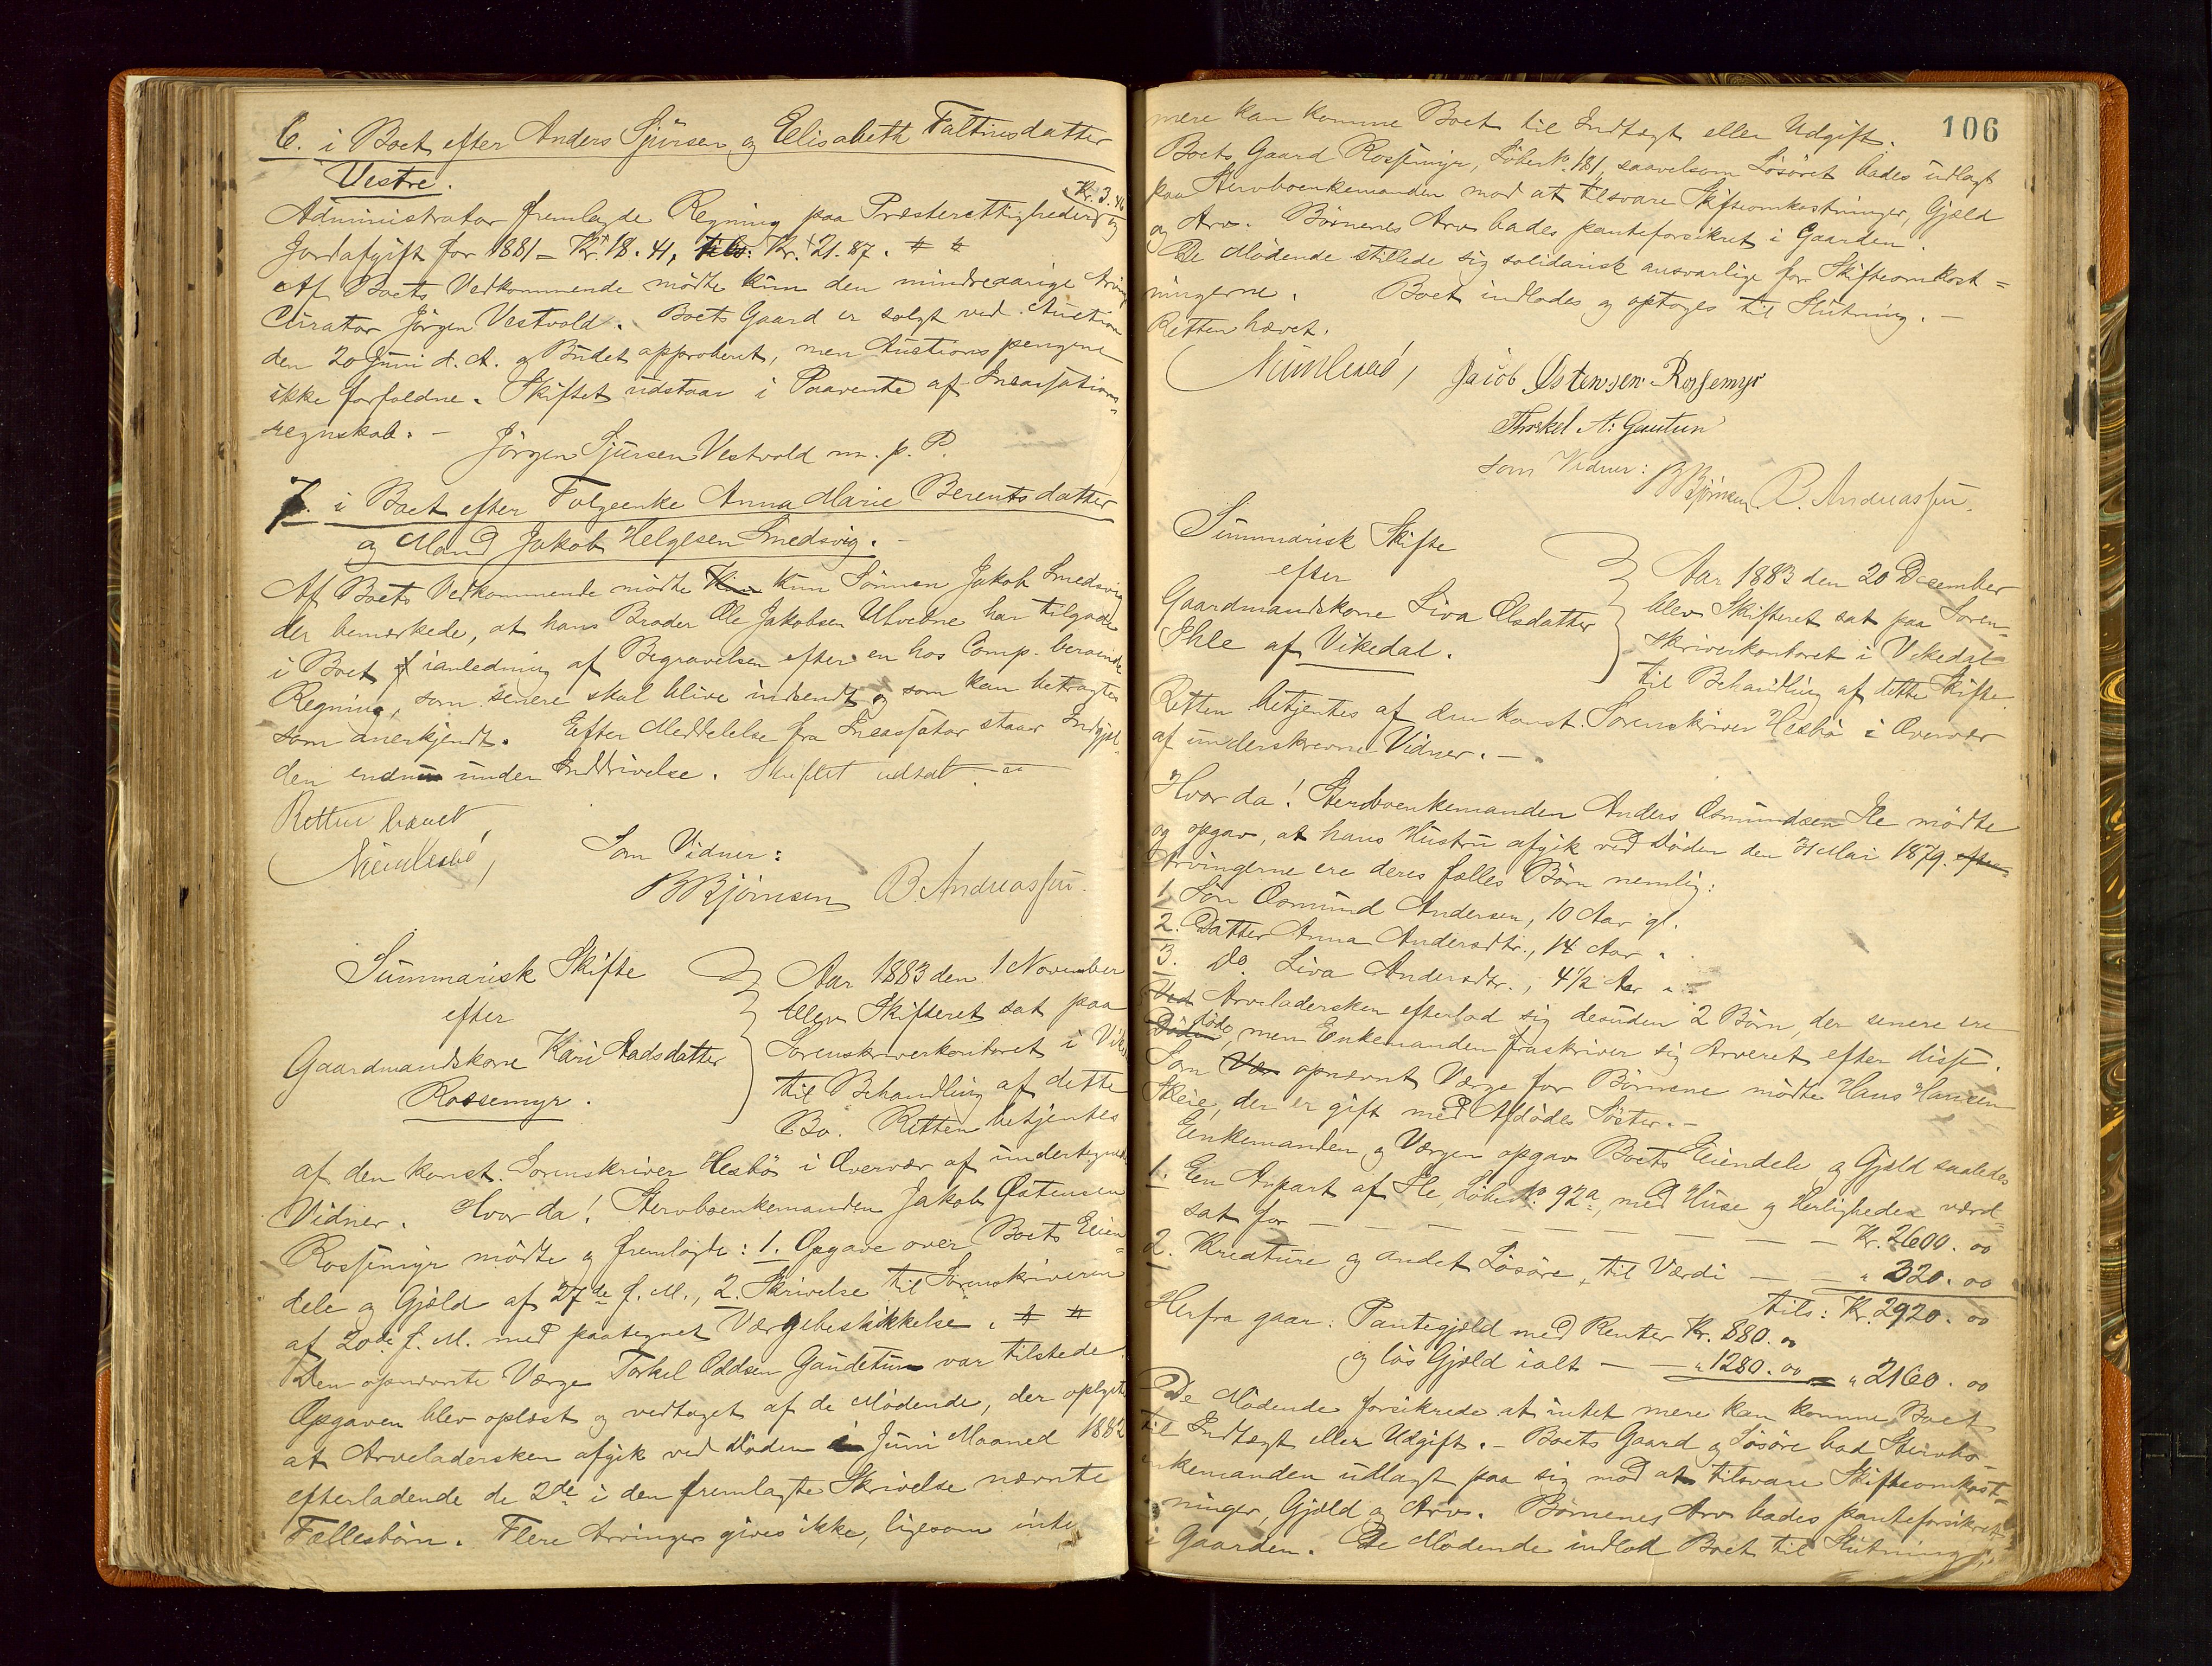 6. i Boet efter Anders Sjursen og Elisabeth Faltinsdatter
Vestre.
Kr. 3.46
Administrator fremlagde Regning paa Præsterettigheder og
Jordafgift for 1881 - Kr. 18.41, tils. Kr. 21.87. # #
Af Boets Vedkommende mødte kun den mindreaarige Arvings
Curator Jörgen Vestvold. Boets Gaard er solgt ved Auction
den 20 Juni d. A. og Budet approberet, men Auctionspengene
ikke forfaldne. Skiftet udstaar i Paavente af Incassations=
regnskab. -
Jörgen Sjursen Vestvold m. p. P.
7. i Boet efter Folgeenke Anna Marie Berentsdatter
og Mand Jakob Helgesen Smedsvig. -
Af Boets Vedkommende mödte kun Sönnen Jakob Smedsvig
der bemærkede, at hans Broder Ole Jakobsen Utvebne har tilgode
i Boet ianledning af Begravelsen efter en hos Comp. beroende
Regning, som senere skal blive indsendt og som kan betragtes
som anerkjendt. Efter Meddelelse fra Incassator staar Indgjæl-
den endnu under Inddrivelse. Skiftet udsat. -
Retten hævet
Som Vidner:
B Bjørnsen B. Andreassen.
Summarisk Skifte
efter
Gaardmandskone Kari Aadsdatter
Rossemyr.
Aar 1883 den 1 November
blev Skifteret sat paa
Sorenskriverkontoret i Vike
til Behandling af dette
Bo. Retten betjentes
af den konst. Sorenskriver Hesbö i Overvær af undertegnede
Vidner. Hvor da! Stervboenkemanden Jakob Östensen
Rossemyr mödte og fremlagde: 1. Opgave over Boets Eien=
dele og Gjæld af 27de f. M., 2. Skrivelse til Sorenskriveren
af 20de f. M. med paategnet Værgebeskikkelse. # #
Den opnævnte Værge Torkel Oddsen Gaudetun var tilstede.
Opgaven blev oplæst og vedtaget af de Mödende, der oplyste
at Arveladersken afgik ved Döden i Juni Maaned 1882
efterladende de 2de i den fremlagte Skrivelse nævnte
Fællesbörn. Flere Arvinger gives ikke, ligesom intet
106
mere kan komme Boet til Indtægt eller Udgift.
Boets Gaard Rossemyr, Löbe No. 181, saavelsom Lösöret bades udlagt
paa Stervboenkemanden mod at tilsvare Skifteomkostninger, Gjæld
og Arv. Börnenes Arv bades panteforsikret i Gaarden.
De Mödende stillede sig solidarisk ansvarlige for Skifteomkost=
ningerne. Boet indlodes og optoges til Slutning. -
Retten hævet.
Jacob Østensen Rossemyr
Thorkel A: Gautun
som Vidner: B Bjørnsen. B. Andreassen.
Summarisk Skifte
efter
Gaardmandskone Siva Olsdatter
Ihle af Vikedal.
Aar 1883 den 20 December
blev Skifteret sat paa Soren-
skriverkontoret i Vikedal
til Behandling af dette Skifte.
Retten betjentes af den konst. Sorenskriver Hesbö i Overvær
af underskrevne Vidner. -
Hvor da! Stervboenkemanden Anders Osmundsen Ile mödte
og opgav, at hans Hustru afgik ved Döden den 31 Mai 1879. efter
Arvingerne ere deres fælles Börn nemlig:
1. Sön Osmund Andersen, 10 Aar gl.
2. Datter Anna Andersdtr., 14 Aar "
3. Do. Siva Andersdtr., 4 1/2 Aar "
Ved Arveladersken efterlod sig desuden 2 Börn, der senere ere
Döden döde, men Enkemanden fraskriver sig Arveret efter disse.
Som Vær opnævnt Værge for Börnene mödte Hans Hansen
Skeie, der er gift med Afdödes Söster. -
Enkemanden og Værgen opgav Boets Eiendele og Gjæld saaledes
1. Een Anpart af Ile, Löbe No. 92a, med Huse og Herligheder værd=
sat for - - - - - - - - Kr. 2600.00
2. Kreature og andet Lösöre, til Værdi - - " 320.00
tils: Kr. 2920.00
Herfra gaar: Pantegjæld med Renter Kr. 880.00
og lös Gjæld ialt - - " 1280.00 = " 2160.00
De Mödende forsikrede at intet mere kan komme Boet
til Indtægt eller Udgift. - Boets Gaard og Lösöre bad Stervbo-
enkemanden udlagt paa sig mod at tilsvare Skifteomkost=
ninger, Gjæld og Arv. Börnenes Arv bades panteforsikret
i Gaarden. De Mödende indlod Boet til Slutning,